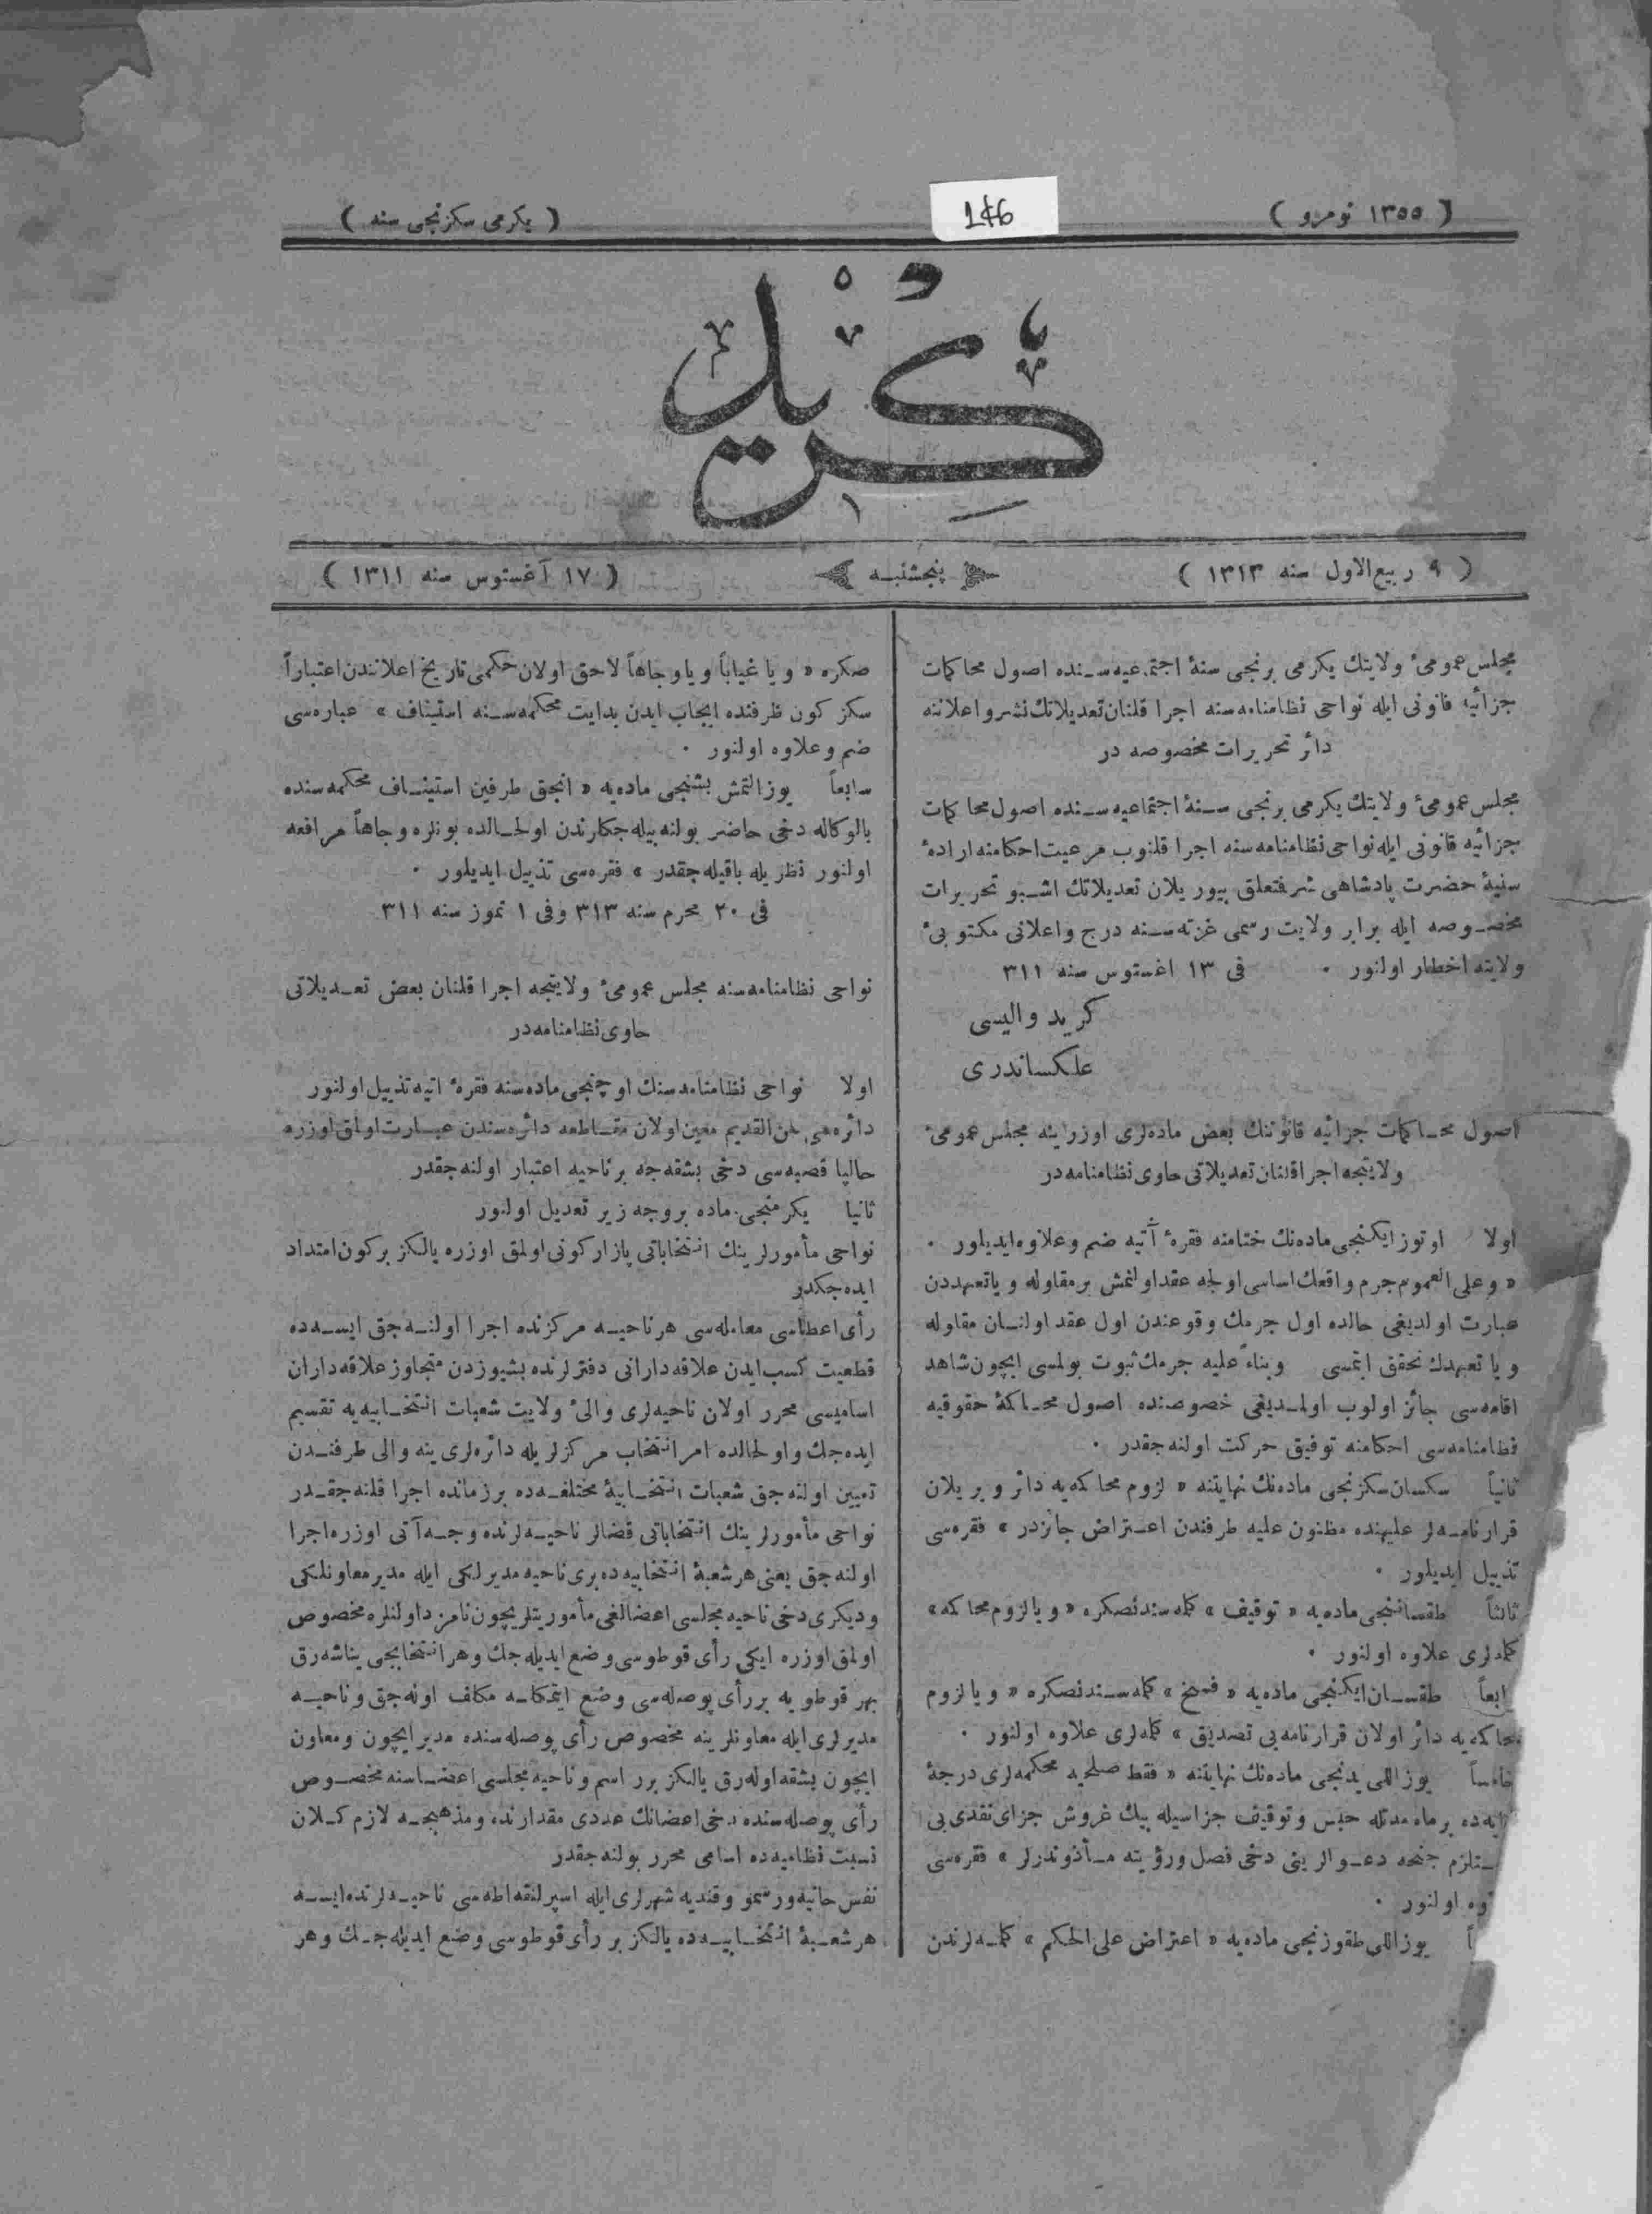 ( ١٣٥٥ نومرو )
146
( يكرمى سكزنجى سنه )
كريد
( ٩ ربيع الاول سنه ١٣١٣ )
پنجشنبه
( ١٧ آغستوس سنه ١٣١١ )
مجلس عمومئ ولايتك يكرمى برنجى سنۀ اجتماعيه سنده اصول محاكمات
جزائيه قانونى ايله نواحى نظامنامه سنه اجرا قلنان تعديلاتك نشر و اعلاننه
دائر تحريرات مخصوصه در
مجلس عمومئ ولايتك يكرمى برنجى سنۀ اجتماعيه سنده اصول محاكمات
جزائيه قانونى ايله نواحى نظامنامه سنه اجرا قلنوب مرعيت احكامنه ارادۀ
سنيۀ حضرت پادشاهى شرفتعلق بيوريلان تعديلاتك اشبو تحريرات
مخصوصه ايله برابر ولايت رسمى غزته سنه درج و اعلانى مكتوبئ
ولايته اخطار اولنور . فى ١٣ اغستوس سنه ٣١١
كريد واليسى
علكساندرى
اصول محاكمات جزائيه قانوننك بعض ماده لرى اوزرينه مجلس عمومئ
ولايتجه اجرا قلنان تعديلاتى حاوى نظامنامه در
اولا اوتوز ايكنجى ماده نك ختامنه فقرۀ آتيه ضم و علاوه ايديلور .
« و على العموم جرم واقعك اساسى اولجه عقد اولنمش بر مقاوله و يا تعهددن
عبارت اولديغى حالده اول جرمك وقوعندن اول عقد اولنان مقاوله
و يا تعهدك تحقق ايتمسى و بناءً عليه جرمك ثبوت بولمسى ايچون شاهد
اقامه سى جائز اولوب اولمديغى خصوصنده اصول محاكمۀ حقوقيه
نظامنامه سى احكامنه توفيق حركت اولنه جقدر .
ثانياً سكسان سكزنجى ماده نك نهايتنه « لزوم محاكمه يه دائر و يريلان
قرارنامه لر عليهنده مظنون عليه طرفندن اعتراض جائزدر » فقره سى
تذييل ايديلور .
ثالثاً طقساننجى ماده يه « توقيف » كله سندنصكره « و يا لزوم محاكمه »
كله لرى علاوه اولنور .
ابعاً طقسان ايكنجى ماده يه « فسخ » كله سندنصكره « و يا لزوم
محاكمه يه دائر اولان قرارنامه يى تصديق » كله لرى علاوه اولنور .
خامساً يوز اللى يدنجى ماده نك نهايتنه « فقط صلحيه محكمه لرى درجۀ
ايه ده بر ماه مدتله حبس و توقيف جزاسيله بيك غروش جزاى نقدى يى
ستلزم جنحه دعوالرينى دخى فصل و رؤيته مأذوندرلر » فقره سى
وه اولنور .
اً يوز اللى طقوزنجى ماده يه « اعتراض على الحكم » كله لرندن
صكره « و يا غياباً و يا وجاهاً لاحق اولان حكمى تاريخ اعلانندن اعتباراً
سكز كون ظرفنده ايجاب ايدن بدايت محكمه سنه استيناف » عباره سى
ضم و علاوه اولنور .
سابعاً يوز التمش بشنجى ماده يه « انجق طرفين استيناف محكمه سنده
بالوكاله دخى حاضر بولنه بيله جكلرندن اولحالده بونلره وجاهاً مرافعه
اولنور نظريله باقيله جقدر » فقره سى تذييل ايديلور .
فى ٢٠ محرم سنه ٣١٣ وفى ١ تموز سنه ٣١١
نواحى نظامنامه سنه مجلس عمومئ ولايتجه اجرا قلنان بعض تعديلاتى
حاوى نظامنامه در
اولا نواحى نظامنامه سنك اوچنجى ماده سنه فقرۀ اتيه تذييل اولنور
دائره سى من القديم معين اولان مقاطعه دائره سندن عبارت اولمق اوزره
حاليا قصبه سى دخى بشقه جه بر ناحيه اعتبار اولنه جقدر
ثانيا يكرمنجى ماده بروجه زير تعديل اولنور
نواحى مأمورلرينك انتخاباتى پازار كونى اولمق اوزره يالكز بر كون امتداد
ايده جكدر
رأى اعطاسى معامله سى هر ناحيه مركزنده اجرا اولنه جق ايسه ده
قطعيت كسب ايدن علاقه دارانى دفترلرنده بشيوزدن متجاوز علاقه داران
اساميسى محرر اولان ناحيه لرى والئ ولايت شعبات انتخابيه يه تقسيم
ايده جك و اولحالده امر انتخاب مركزلريله دائره لرى ينه والى طرفندن
تعيين اولنه جق شعبات انتخابيۀ مختلفه ده بر زمانده اجرا قلنه جقدر
نواحى مأمورلرينك انتخاباتى قضالر ناحيه لرنده وجه آتى اوزره اجرا
اولنه جق يعنى هر شعبۀ انتخابيه ده برى ناحيه مديرلكى ايله مدير معاونلكى
و ديكرى دخى ناحيه مجلسى اعضالغى مأموريتلريچون نامزد اولنلره مخصوص
اولمق اوزره ايكى رأى قوطوسى وضع ايديله جك و هر انتخابجى يناشه رق
بهر قوطويه بر رأى پوصله سى وضع ايتمكله مكلف اوله جق و ناحيه
مديرلرى ايله معاونلرينه مخصوص رأى پوصله سنده مدير ايچون و معاون
ايچون بشقه اوله رق يالكز برر اسم و ناحيه مجلسى اعضاسنه مخصوص
رأى پوصله سنده دخى اعضانك عددى مقدارنده و مذهبجه لازم كلان
نسبت نظاميه ده اسامى محرر بولنه جقدر
نفس حانيه و رسمو و قنديه شهرلرى ايله اسپرلنقه اطه سى ناحيه لرنده ايسه
هر شعبۀ انتخابيه ده يالكز بر رأى قوطوسى وضع ايديله جك و هر